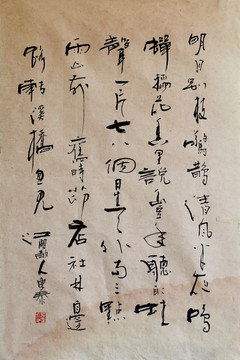 明月別枝驚鵲清風半夜鳴
蟬稻花香里說豐年聽取蛙
聲一片七八個星天外兩三點
雨山前舊時茅店社林邊
路轉溪橋忽見